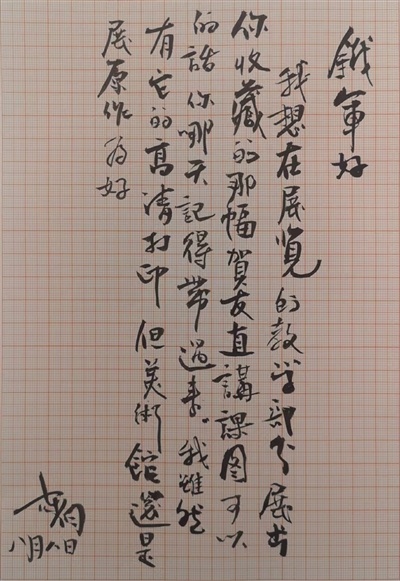 鐵軍好
我想在展览的教学部分展出
你收藏的那幅賀友直講課图可以
的話你哪天記得帶過来。我雖然
有它的高清打印但美術館還是
展原作为好
八月八日